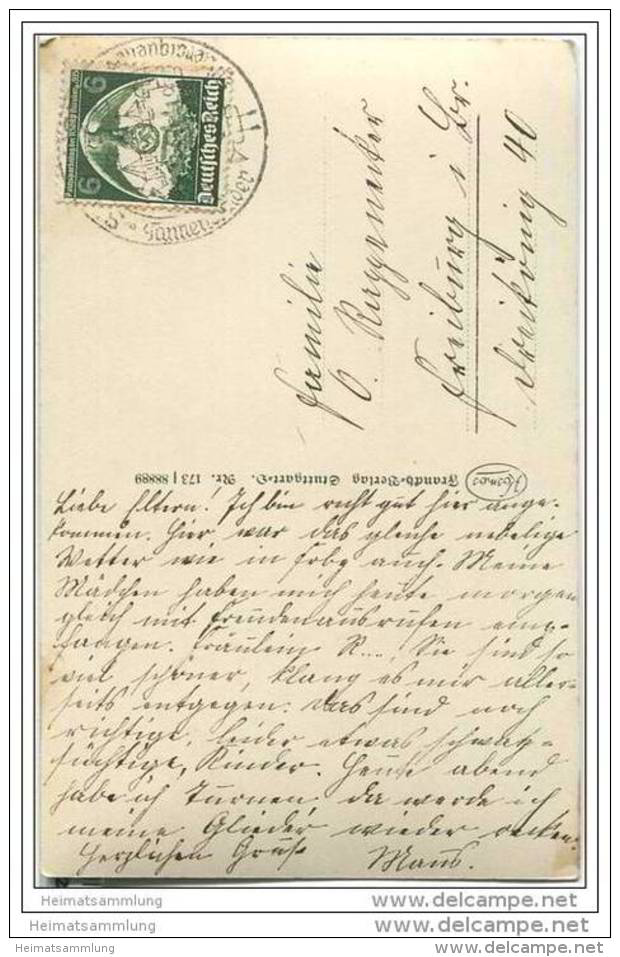 6 6
Deutsches Reich
Familie
O. Roggenecker
Freiburg i Br.
Dreikönig 40
Kosmos
Franckh-Verlag Stuttgart-O. Nr. 173 | 88889
Liebe Eltern! Ich bin recht gut hier ange-
kommen. Hier war das gleiche neblige
Wetter wie in Frbg auch. Meine
Mädchen haben mich heute morgen
gleich mit Freudenausrufen emp-
fangen. Fräulein R...., Sie sind so
viel schöner, klang es mir aller-
seits entgegen. Das sind noch
richtige, leider etwas schwatz-
süchtige, Kinder. Heute abend
habe ich Turnen, da werde ich
meine Glieder wieder recken.
Herzlichen Gruß Maus.
Heimatsammlung www.delcampe.net
Heimatsammlung www.delcampe.net
Heimatsammlung www.delcampe.net